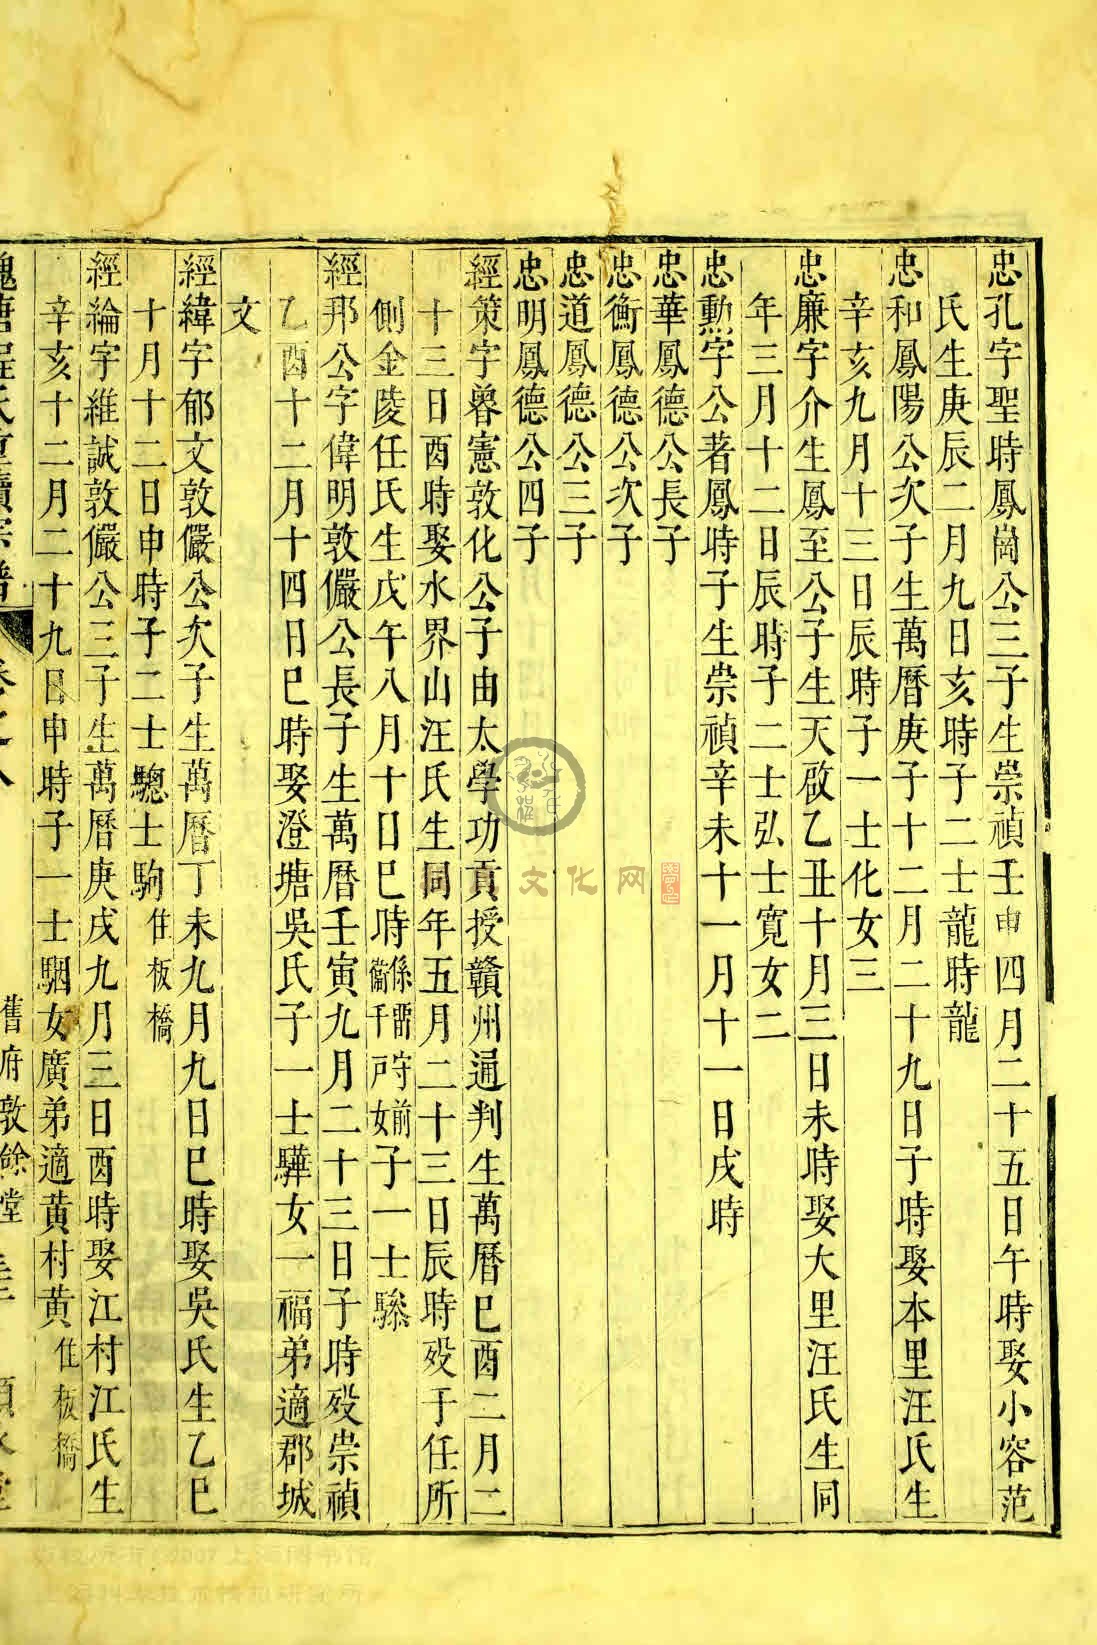 忠孔字聖時鳳崗公三子生崇禎壬申四月二十五日午時娶小容范
氏生庚辰二月九日亥時子二士龍時龍
忠和鳳陽公次子生萬曆庚子十二月二十九日子時娶本里汪氏生
辛亥九月十三日辰時子一士化女三
忠廉字介生鳳至公子生天啟乙丑十月三日未時娶大里汪氏生同
年三月十二日辰時子二士弘士寬女二
忠勲字公著鳳時子生崇禎辛未十一月十一日戌時
忠華鳳德公長子
忠衡鳳德公次子
忠道鳳德公三子
忠明鳳德公四子
經策字魯憲敦化公子由太學功貢授贛州通判生萬曆巳酉二月二
十三日酉時娶水界山汪氏生同年五月二十三日辰時歿于任所
側金陵任氏生戊午八月十日巳時係留守前衞千戸女子一士騄
經邦公字偉明敦儼公長子生萬曆壬寅九月二十三日子時歿崇禎
乙酉十二月十四日巳時娶澄塘吳氏子一士驊女一福弟適郡城
文
經緯字郁文敦儼公次子生萬曆丁未九月九日巳時娶吳氏生乙巳
十月十二日申時子二士驄士駒住板橋
經綸字維誠敦儼公三子生萬曆庚戌九月三日酉時娶江村江氏生
辛亥十二月二十九日申時子一士駰女廣弟適黄村黄住板橋
舊府敦餘堂
文化网